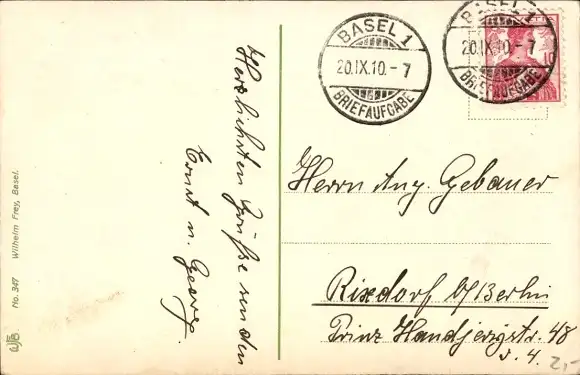 BASEL 1
20.IX.10.-7
BRIEFAUFGABE
BASEL 1
20.IX.10.-7
BRIEFAUFGABE
10
Herzlichsten Grüße senden
Ernst u. Georg.
Herrn Aug. Gebauer
Rixdorf b/Berlin
Prinz Handjerystr. 48
v. 4.
2,-
No. 347 Wilhelm Frey, Basel.